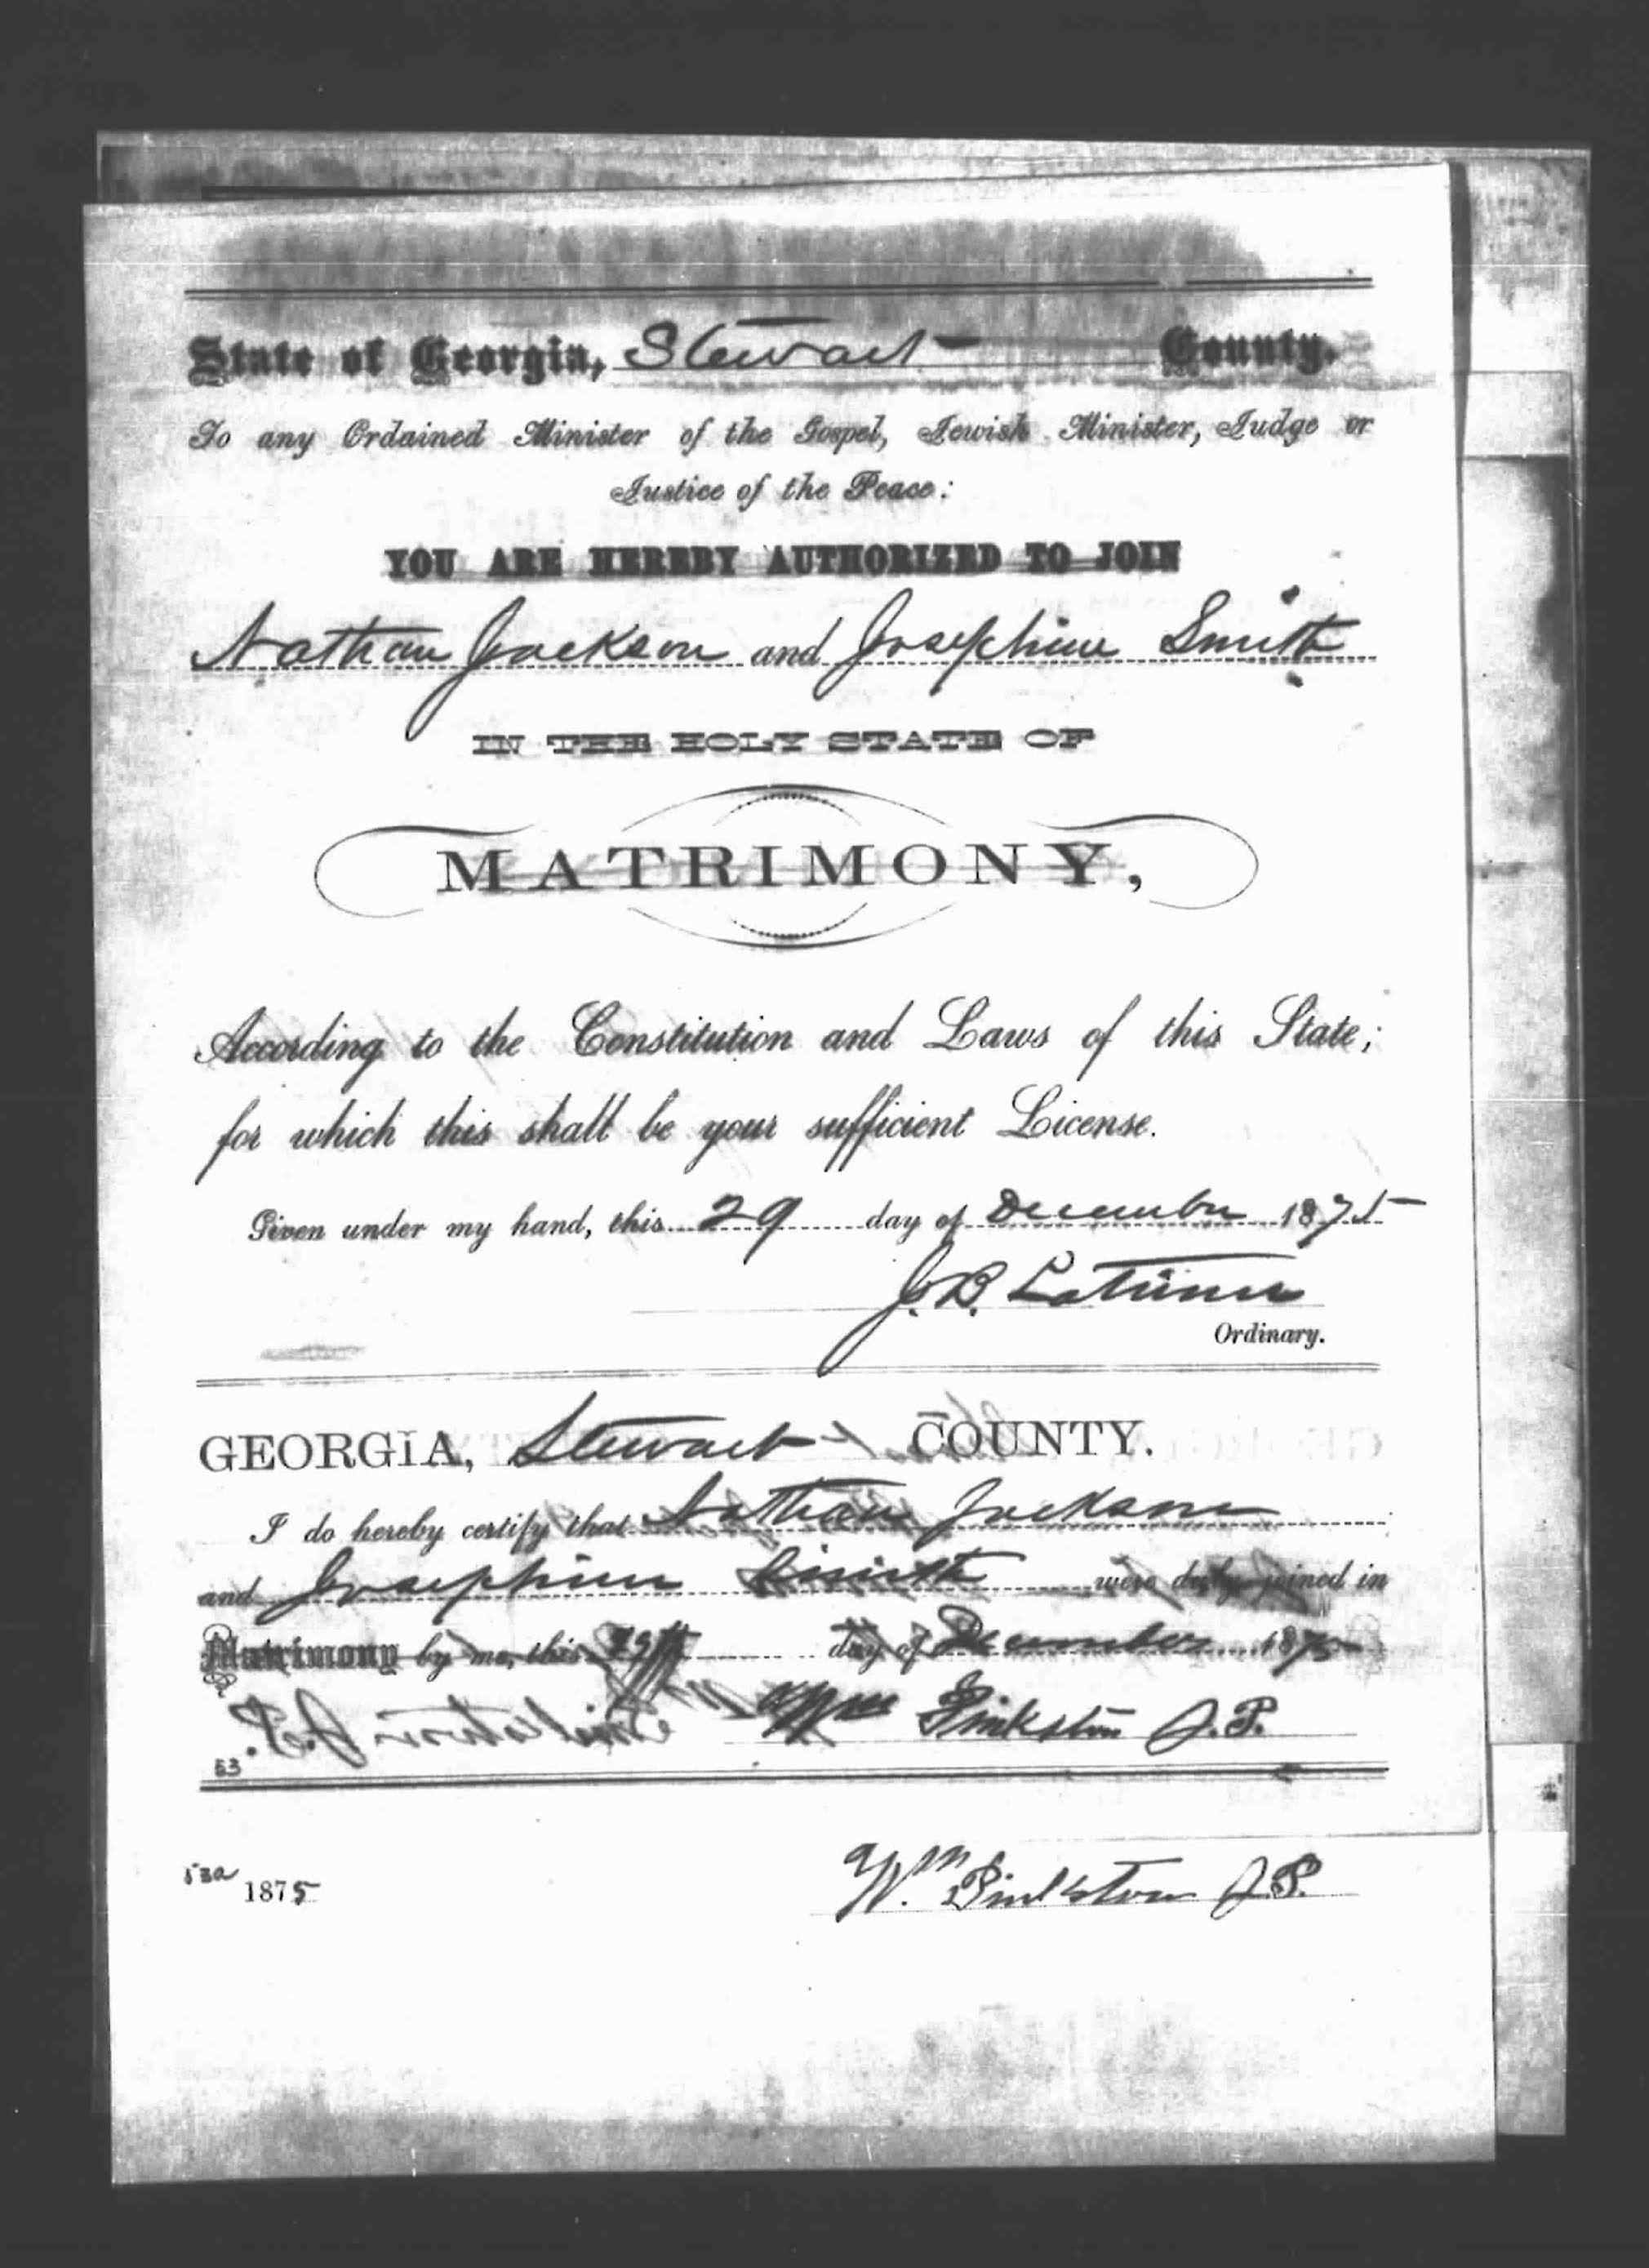 State of Georgia, Stewart County.
To any Ordained Minister of the Gospel, Jewish Minister, Judge or
Justice of the Peace:
YOU ARE HEREBY AUTHORIZED TO JOIN
Nathan Jackson and Josephine Smith
IN THE HOLY STATE OF
MATRIMONY,
According to the Constitution and Laws of this State;
for which this shall be your sufficient License.
Given under my hand, this 29 day of December 1875
J. B. Latimer
Ordinary.
GEORGIA, Stewart COUNTY.
I do hereby certify that Nathan Jackson
and Josephine Smith were duly joined in
Matrimony by me, this 29th day of December 1875
Wm Pinkston J. P.
53
53a 1875
Wm Pinkston J. P.